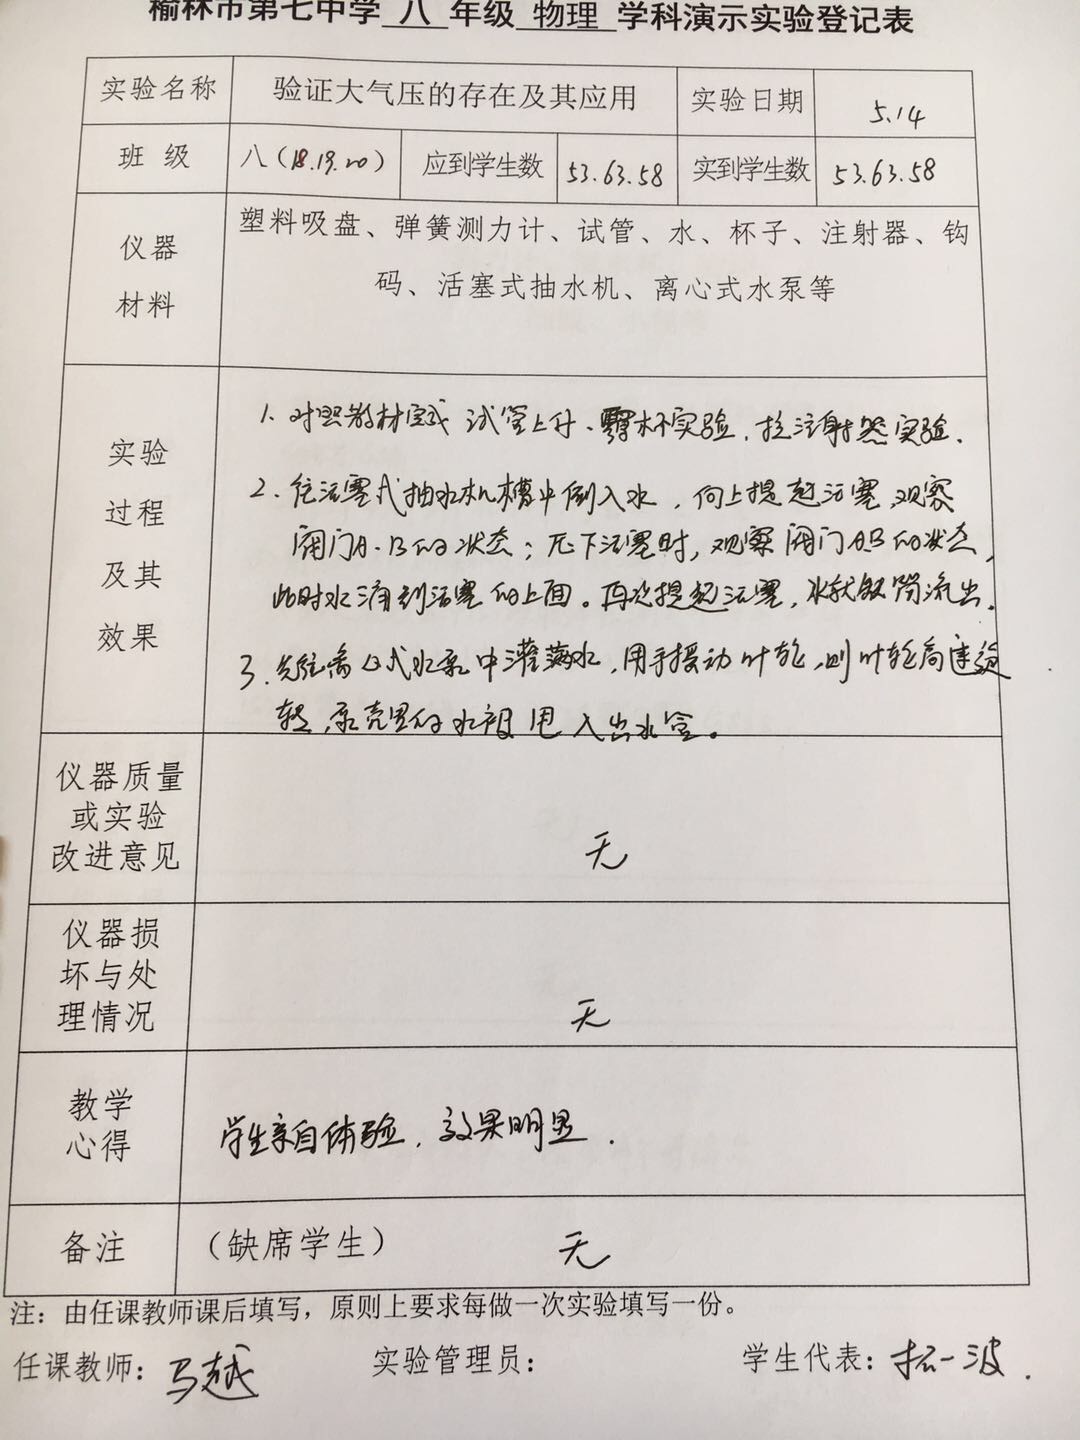 榆林市第七中学 八 年级 物理 学科演示实验登记表
实验名称 验证大气压的存在及其应用 实验日期 5.14
班 级 八(18.19.20) 应到学生数 53.63.58 实到学生数 53.63.58
仪器
材料
塑料吸盘、弹簧测力计、试管、水、杯子、注射器、钩
码、活塞式抽水机、离心式水泵等
实验
过程
及其
效果
1. 对照教材完成 试管上升、覆杯实验，拉注射器实验.
2. 往活塞式抽水机槽中倒入水，向上提起活塞，观察
阀门A.B的状态；压下活塞时，观察阀门AB的状态，
此时水涌到活塞的上面。再次提起活塞，水就 流出.
3. 先往离心式水泵中灌满水，用手摇动叶轮，则叶轮高速旋
转，泵壳里的水被甩入出水管。
仪器质量
或实验
改进意见
无
仪器损
坏与处
理情况
无
教学
心得
学生亲自体验，效果明显.
备注 (缺席学生) 无
注：由任课教师课后填写，原则上要求每做一次实验填写一份。
任课教师：马越 实验管理员： 学生代表：拓一波.